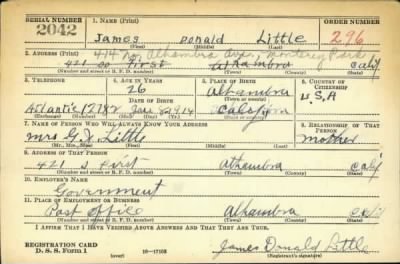 SERIAL NUMBER 1. NAME (Print) ORDER NUMBER
2042 James Donald Little 296
(First) (Middle) (Last)
2. ADDRESS (Print) 414 No. Alhambra Ave, Monterey Park
421 So First Alhambra Calif
(Number and street or R. F. D. number) (Town) (County) (State)
3. TELEPHONE 4. AGE IN YEARS 5. PLACE OF BIRTH 6. COUNTRY OF CITIZENSHIP
26 Alhambra U.S.A
DATE OF BIRTH (Town or county)
Atlantic 12782 1914 Calif
(Exchange) (Number) (Mo.) (Day) (Yr.) (State or country)
7. NAME OF PERSON WHO WILL ALWAYS KNOW YOUR ADDRESS 8. RELATIONSHIP OF THAT PERSON
Mrs G. J. Little mother
(Mr., Mrs., Miss) (First) (Middle) (Last)
9. ADDRESS OF THAT PERSON
421 S First Alhambra Calif
(Number and street or R. F. D. number) (Town) (County) (State)
10. EMPLOYER'S NAME
Government
11. PLACE OF EMPLOYMENT OR BUSINESS
Post office Alhambra Calif
(Number and street or R. F. D. number) (Town) (County) (State)
I AFFIRM THAT I HAVE VERIFIED ABOVE ANSWERS AND THAT THEY ARE TRUE.
REGISTRATION CARD
D. S. S. Form 1 (over) 16—17105 James Donald Little
(Registrant's signature)